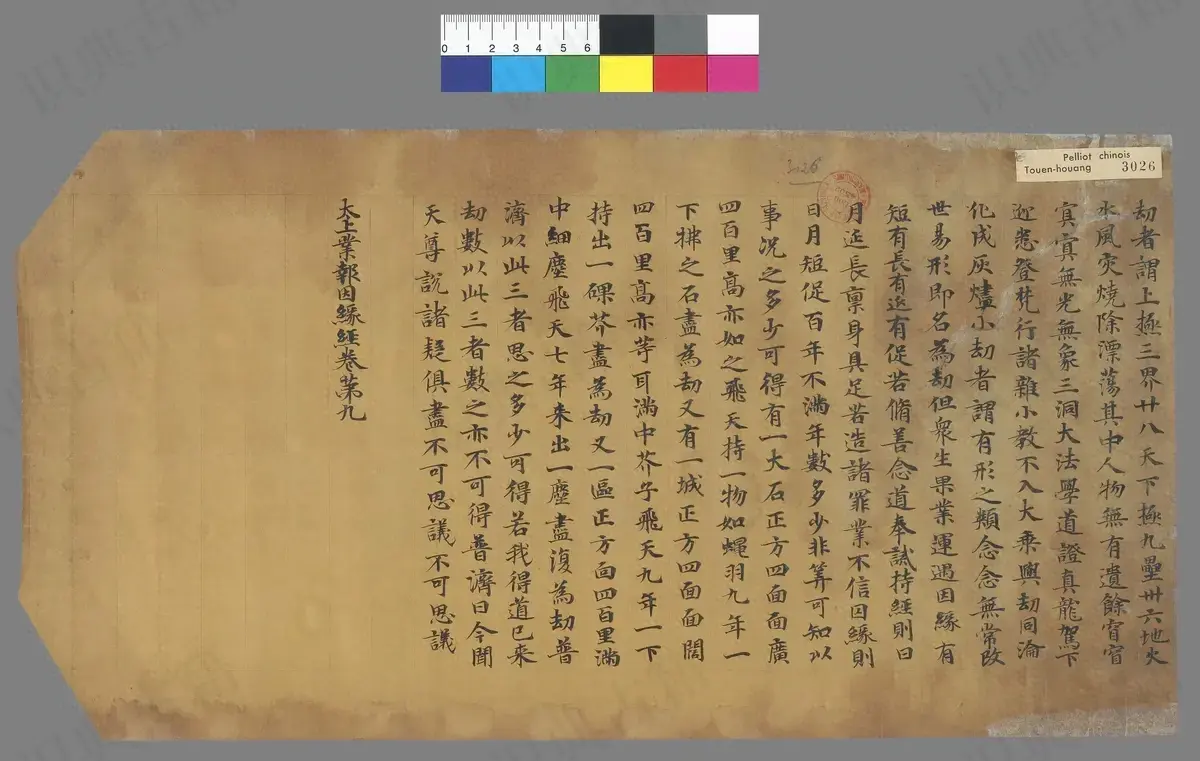 劫者謂上極三界廿八天下極九壘卅六地火
水風灾燒除漂蕩其中人物無有遺餘窅窅
寘寘無光無象三洞大法學道證真龍駕下
迎悉登梵行諸雜小教不入大乗與劫同淪
化成灰燼小劫者謂有形之類念念無常改
世易形即名為劫但衆生果業運遇因緣有
短有長有延有促若脩善念道奉誡持經則日
月延長禀身具足若造諸罪業不信因緣則
日月短促百年不滿年數多少非筭可知以
事况之多少可得有一大石正方四面面廣
四百里髙亦如之飛天持一物如蠅羽九年一
下拂之石盡為劫又有一城正方四面面闊
四百里髙亦等耳滿中芥子飛天九年一下
持出一磥芥盡為劫又一區正方面四百里滿
中細塵飛天七年来出一塵盡復為劫普
濟以此三者思之多少可得若我得道已来
劫數以此三者數之亦不可得普濟曰今聞
天尊說諸疑俱盡不可思議不可思議
太上業報因緣經卷第九
3026
Pelliot chinois
Touen-houang 3026
0 1 2 3 4 5 6